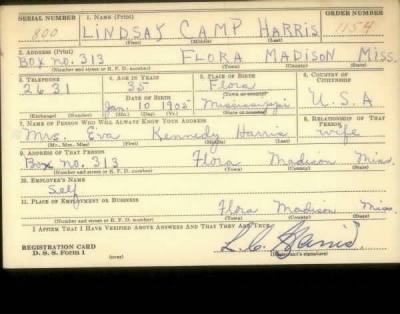 SERIAL NUMBER 1. NAME (Print) ORDER NUMBER
800 LINDSAY CAMP HARRIS 1154
(First) (Middle) (Last)
2. ADDRESS (Print)
Box no. 313 FLORA MADISON MISS.
(Number and street or R. F. D. number) (Town) (County) (State)
3. TELEPHONE 4. AGE IN YEARS 5. PLACE OF BIRTH 6. COUNTRY OF CITIZENSHIP
2631 35 Flora
(Town or county)
DATE OF BIRTH
Jan. 10 1905 Mississippi U. S. A
(Exchange) (Number) (Mo.) (Day) (Yr.) (State or country)
7. NAME OF PERSON WHO WILL ALWAYS KNOW YOUR ADDRESS 8. RELATIONSHIP OF THAT PERSON
Mrs. Eva Kennedy Harris wife
(Mr., Mrs., Miss) (First) (Middle) (Last)
9. ADDRESS OF THAT PERSON
Box no. 313 Flora Madison Miss.
(Number and street or R. F. D. number) (Town) (County) (State)
10. EMPLOYER'S NAME
Self
11. PLACE OF EMPLOYMENT OR BUSINESS
Flora Madison Miss.
(Number and street or R. F. D. number) (Town) (County) (State)
I AFFIRM THAT I HAVE VERIFIED ABOVE ANSWERS AND THAT THEY ARE TRUE.
REGISTRATION CARD
D. S. S. Form 1 L. C. Harris
(Registrant's signature)